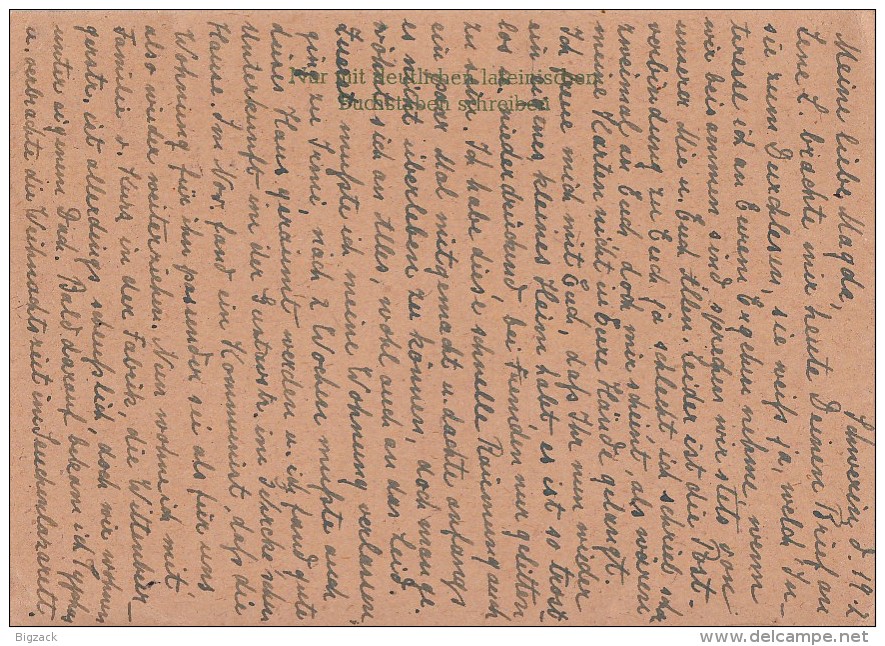 Schwerin, d. 19.2
Meine liebe Magda,
Lene L. brachte mir heute Deinen Brief an
sie zum Durchlesen, sie weiß ja, welch In-
teresse ich an Eurem Ergehen nehme, wenn
wir beisammen sind sprechen wir stets von
unserer Ilse u. Euch Allen. Leider ist die Post-
verbindung zu Euch ja schlecht ich schrieb schon
zweimal an Euch, doch mir scheint, als wären
meine Karten nicht in Eure Hände gelangt.
Ich freue mich mit Euch, daß Ihr nun wieder
ein eigenes, kleines Heim habt, es ist so trost-
los u. niederdrückend bei Fremden nur gelitten
zu sein. Ich habe diese schnelle Räumung auch
ein paar Mal mitgemacht u. dachte anfangs
es nicht überleben zu können, doch
gewöhnt sich an Alles, wohl auch an das Leid.
Zuerst mußte ich meine Wohnung verlassen,
ging zu Irmi, nach 2 Wochen mußte auch
deren Haus geräumt werden u. ich fand gute
Unterkunft in der
Klause. Im Nov. fand ein Kommunist, daß die
Wohnung für ihn passender sei als für uns
also wieder weiterziehen. Nun wohne ich mit
Familie v. in der Fabrik die Wittenbur-
gerstr. ist allerdings scheußlich, doch wir wohnen
unter eigenem Dach. Bald darauf bekam ich Typhus
u. verbrachte die Weihnachtszeit im Seuchenlazarett.
Nur mit deutlichen lateinischen
Buchstaben schreiben
Bigzack
www.delcampe.net